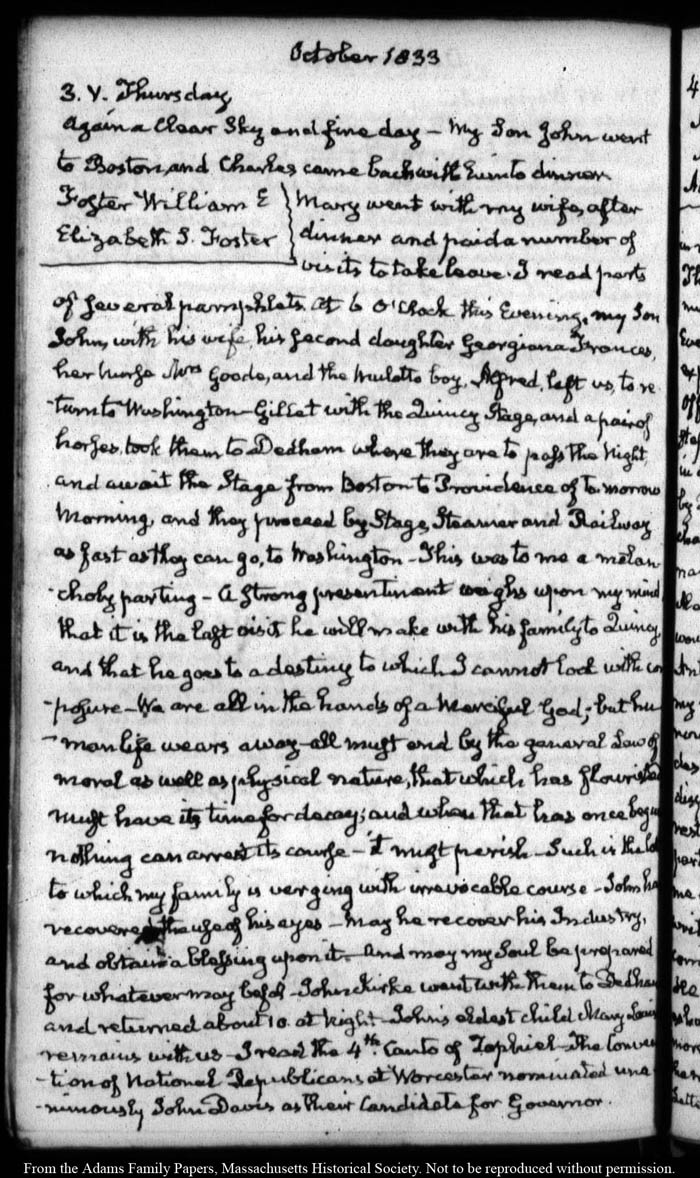 October 1833
3. V. Thursday
Again a Clear Sky and fine day - My Son John went
to Boston, and Charles came back with him to dinner.
Foster William E
Elizabeth S. Foster
Mary went with my wife, after
dinner and paid a number of
visits to take leave. I read parts
of several pamphlets. At 6 O'Clock this Evening, my Son
John, with his wife, his second daughter Georgiana Frances,
her nurse Mrs Goods, and the Mulatto boy, Alfred, left us, to re
-turn to Washington - Gillet with the Quincy Stage, and a pair of
horses, took them to Dedham where they are to pass the Night,
and await the Stage from Boston to Providence of to-morrow
Morning, and they proceed by Stage, Steamer and Railway
as fast as they can go, to Washington - This was to me a melan
-choly parting - A strong presentiment weighs upon my mind
that it is the last visit he will make with his family to Quincy,
and that he goes to a destiny to which I cannot look with com
-posure - We are all in the hands of a Merciful God; but hu
-man life wears away - all must end by the general Law of
moral as well as physical nature, that which has flourished
must have its time for decay; and when that has once begun
nothing can arrest its course - it must perish - Such is the
to which my family is verging with irrevocable course - John has
recovered the use of his eyes - May he recover his Industry,
and obtain a blessing upon it - And may my Soul be prepared
for whatever may befal - John Kirke went with them to Dedham
and returned about 10. at Night - John's eldest child Mary Louisa
remains with us - I read the 4th. Canto of Zophiel - The Conven
-tion of National Republicans at Worcester nominated una
-nimously John Davis as their Candidate for Governor.
From the Adams Family Papers, Massachusetts Historical Society. Not to be reproduced without permission.